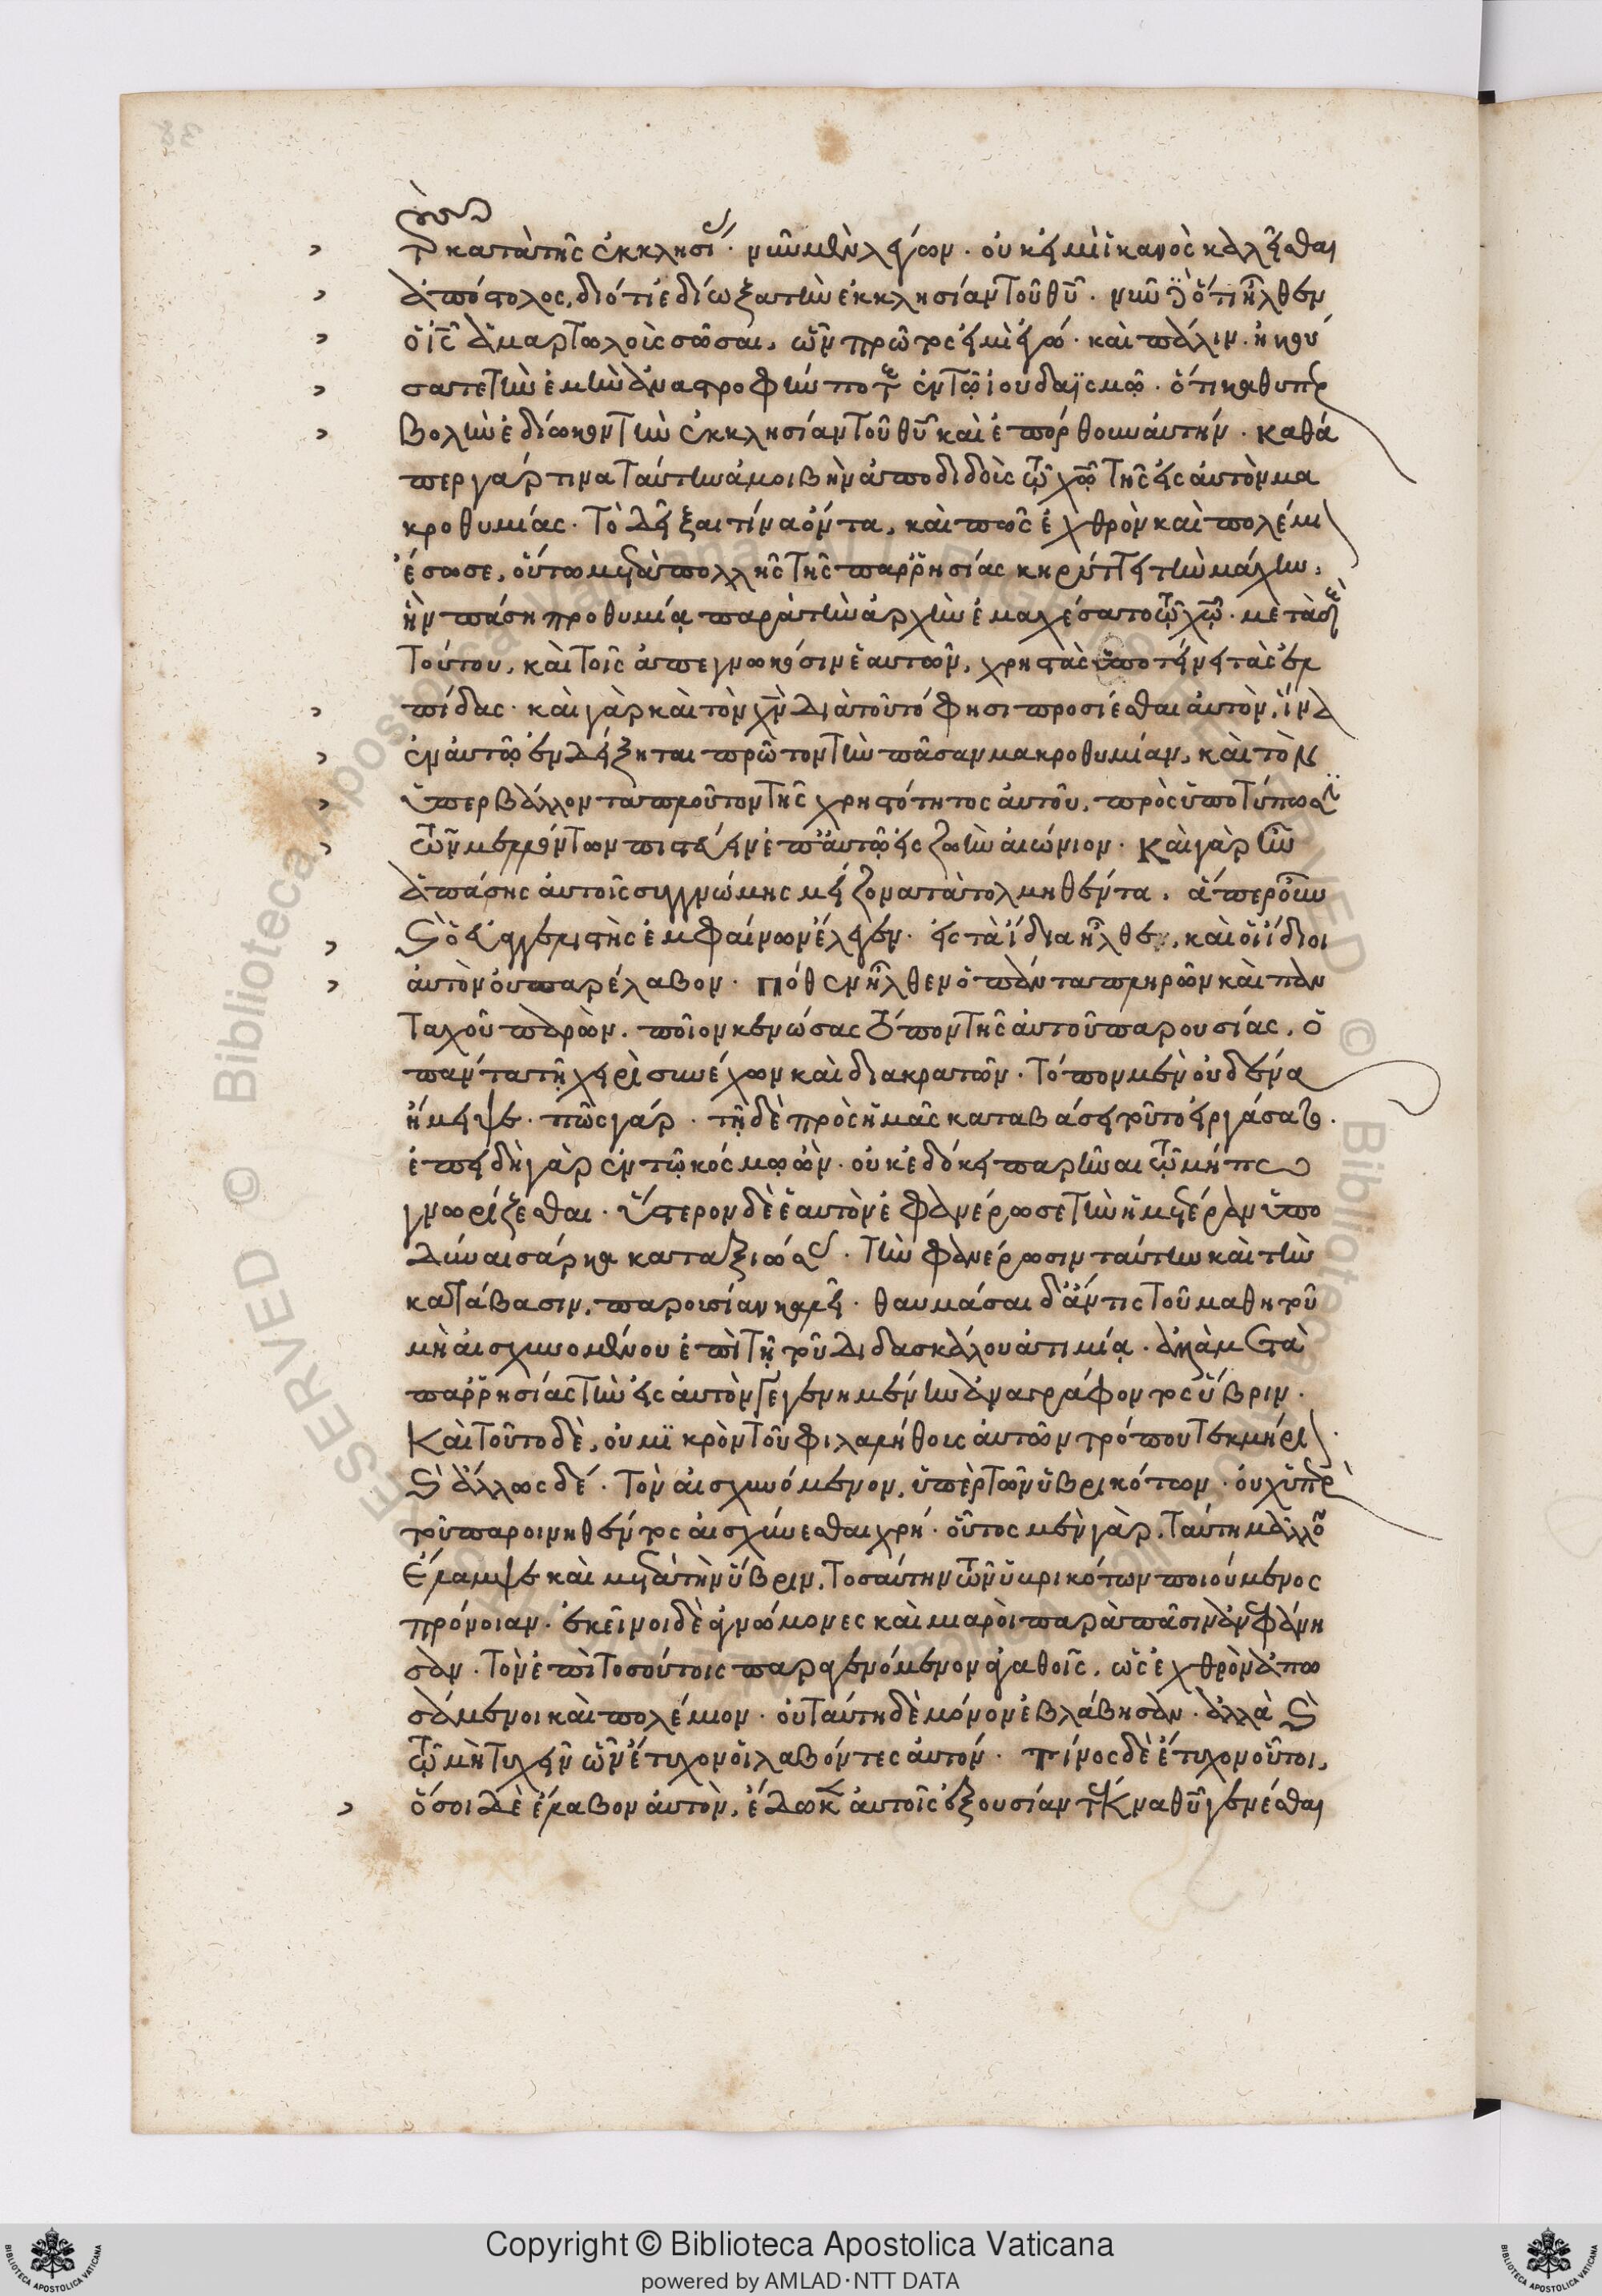 τ κατὰ τῆς ἐκκλησί· νῦν μὲν λέγων· οὐκ εἰμὶ ἱκανὸς καλεῖσθαι
ἀπόστολος, διότι ἐδίωξα τὴν ἐκκλησίαν τοῦ θυ· νῦν δὲ ὅτι ἦλθεν
ὁ ις ἁμαρτωλοὺς σῶσαι, ὧν πρῶτος εἰμὶ ἐγώ· καὶ πάλιν· ἠκού
σατε τὴν ἐμὴν ἀναστροφήν ποτε ἐν τῷ ἰουδαϊσμῷ· ὅτι καθυπερ
βολὴν ἐδίωκον τὴν ἐκκλησίαν τοῦ θυ καὶ ἐπόρθουν αὐτήν· καθά
περ γάρ τινα ταύτην ἀμοιβὴν ἀποδιδοὺς τῷ χω τῆς εἰς αὐτὸν μα
κροθυμίας· τὸ δεῖξαι τίνα ὄντα, καὶ πῶς ἐχθρὸν καὶ πολέμι
ἔσωσε, οὕτω μετὰ πολλῆς τῆς παρρησίας κηρύττει τὴν μάχην,
ἣν πάσῃ προθυμίᾳ παρὰ τὴν ἀρχὴν ἐμαχέσατο τῷ χω· μετὰ δὲ
τούτου, καὶ τοῖς ἀπεγνωκόσιν ἑαυτῶν, χρηστὰς ὑποτείνει τὰς ἐλ
πίδας· καὶ γὰρ καὶ τὸν χν διὰ τοῦτό φησι προσίεσθαι αὐτὸν, ἵνα
ἐν αὐτῷ ἐνδείξηται πρῶτον τὴν πᾶσαν μακροθυμίαν, καὶ τὸν
ὑπερβάλλοντα πλοῦτον τῆς χρηστότητος αὐτοῦ, πρὸς ὑποτύπωσι
τῶν μελλόντων πιστεύειν ἐπ' αὐτῷ εἰς ζωὴν αἰώνιον· καὶ γὰρ ἦν
ἁπάσης αὐτοῖς συγγνώμης μείζονα τὰ τολμηθέντα, ἅπερ οὖν
καὶ ὁ εὐαγγελιστὴς ἐμφαίνων ἔλεγεν· εἰς τὰ ἴδια ἦλθεν, καὶ οἱ ἴδιοι
αὐτὸν οὐ παρέλαβον· πόθεν ἦλθεν ὁ πάντα πληρῶν καὶ παν
ταχοῦ παρὼν, ποῖον κενώσας τόπον τῆς αὐτοῦ παρουσίας, ὁ
πάντα τῇ χειρὶ συνέχων καὶ διακρατῶν· τόπον μὲν οὐδένα
ἤμειψε· πῶς γάρ· τῇ δὲ πρὸς ἡμᾶς καταβάσει τοῦτο εἰργάσατο·
ἐπειδὴ γὰρ ἐν τῷ κόσμῳ ὢν· οὐκ ἐδόκει παρεῖναι τῷ μήπω
γνωρίζεσθαι· ὕστερον δὲ ἑαυτὸν ἐφανέρωσε τὴν ἡμετέραν ὑπο
δῦναι σάρκα καταξιώσας· τὴν φανέρωσιν ταύτην καὶ τὴν
κατάβασιν, παρουσίαν καλεῖ· θαυμάσαι δ' ἄν τις τοῦ μαθητοῦ
μὴ αἰσχυνομένου ἐπὶ τῇ τοῦ διδασκάλου ἀτιμίᾳ· ἀλλὰ μετὰ
παρρησίας τὴν εἰς αὐτὸν γεγενημένην ἀναγράφοντος ὕβριν·
καὶ τοῦτο δὲ, οὐ μικρὸν τοῦ φιλαλήθους αὐτῶν τρόπου τεκμήρι·
καὶ ἄλλως δέ· τὸν αἰσχυνόμενον, ὑπὲρ τῶν ὑβρικότων· οὐχ ὑπὲρ
τοῦ παροινηθέντος αἰσχύνεσθαι χρή· οὗτος μὲν γὰρ, ταύτῃ μᾶλλον
ἔλαμψε καὶ μετὰ τὴν ὕβριν, τοσαύτην τῶν ὑβρικότων ποιούμενος
πρόνοιαν· ἐκεῖνοι δὲ ἀγνώμονες καὶ μιαροὶ παρὰ πᾶσιν ἀνεφάνη
σαν· τὸν ἐπὶ τοσούτοις παραγενόμενον ἀγαθοῖς, ὡς ἐχθρὸν ἀπω
σάμενοι καὶ πολέμιον· οὐ ταύτῃ δὲ μόνον ἐβλάβησαν· ἀλλὰ καὶ
τῷ μὴ τυχεῖν ὧν ἔτυχον οἱ λαβόντες αὐτόν· τίνος δὲ ἔτυχον οὗτοι,
ὅσοι δὲ ἔλαβον αὐτὸν, ἔδωκεν αὐτοῖς ἐξουσίαν τέκνα θυ γενέσθαι
Copyright © Biblioteca Apostolica Vaticana
powered by AMLAD·NTT DATA